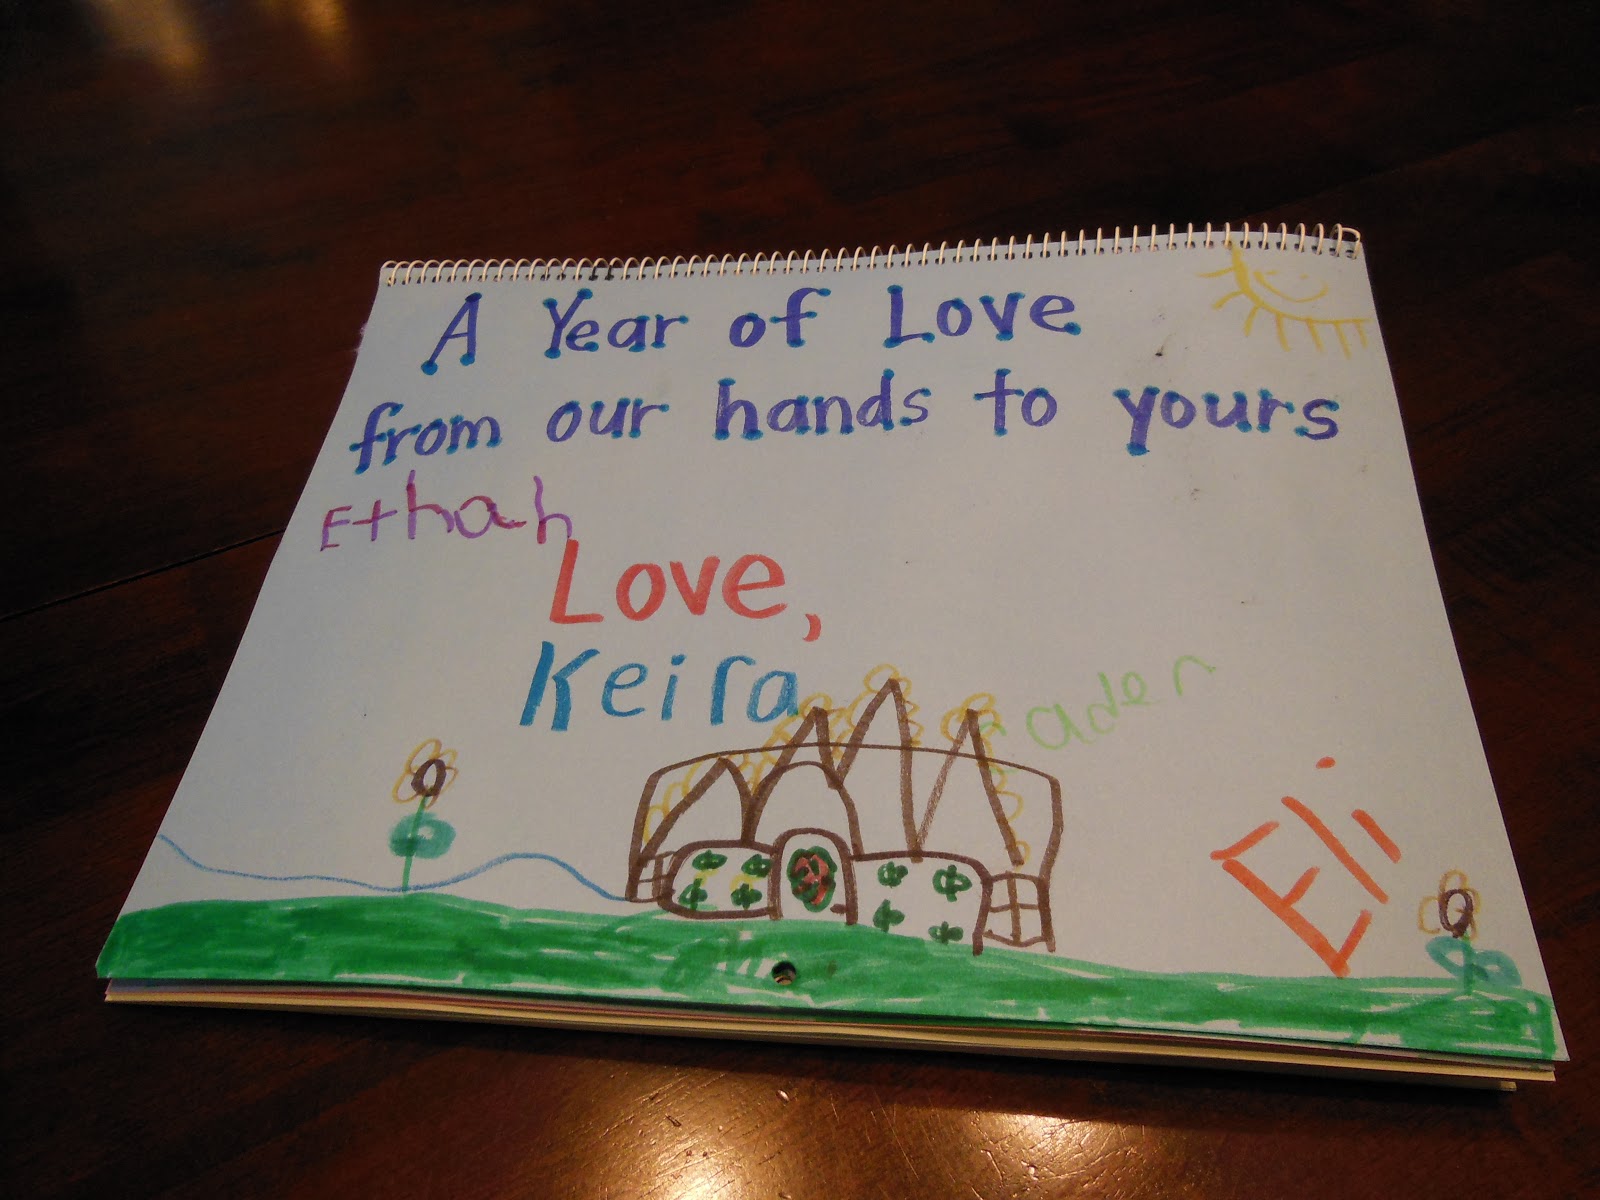 A Year of Love
from our hands to yours
Ethan
Love,
Keira
Caden
Eli